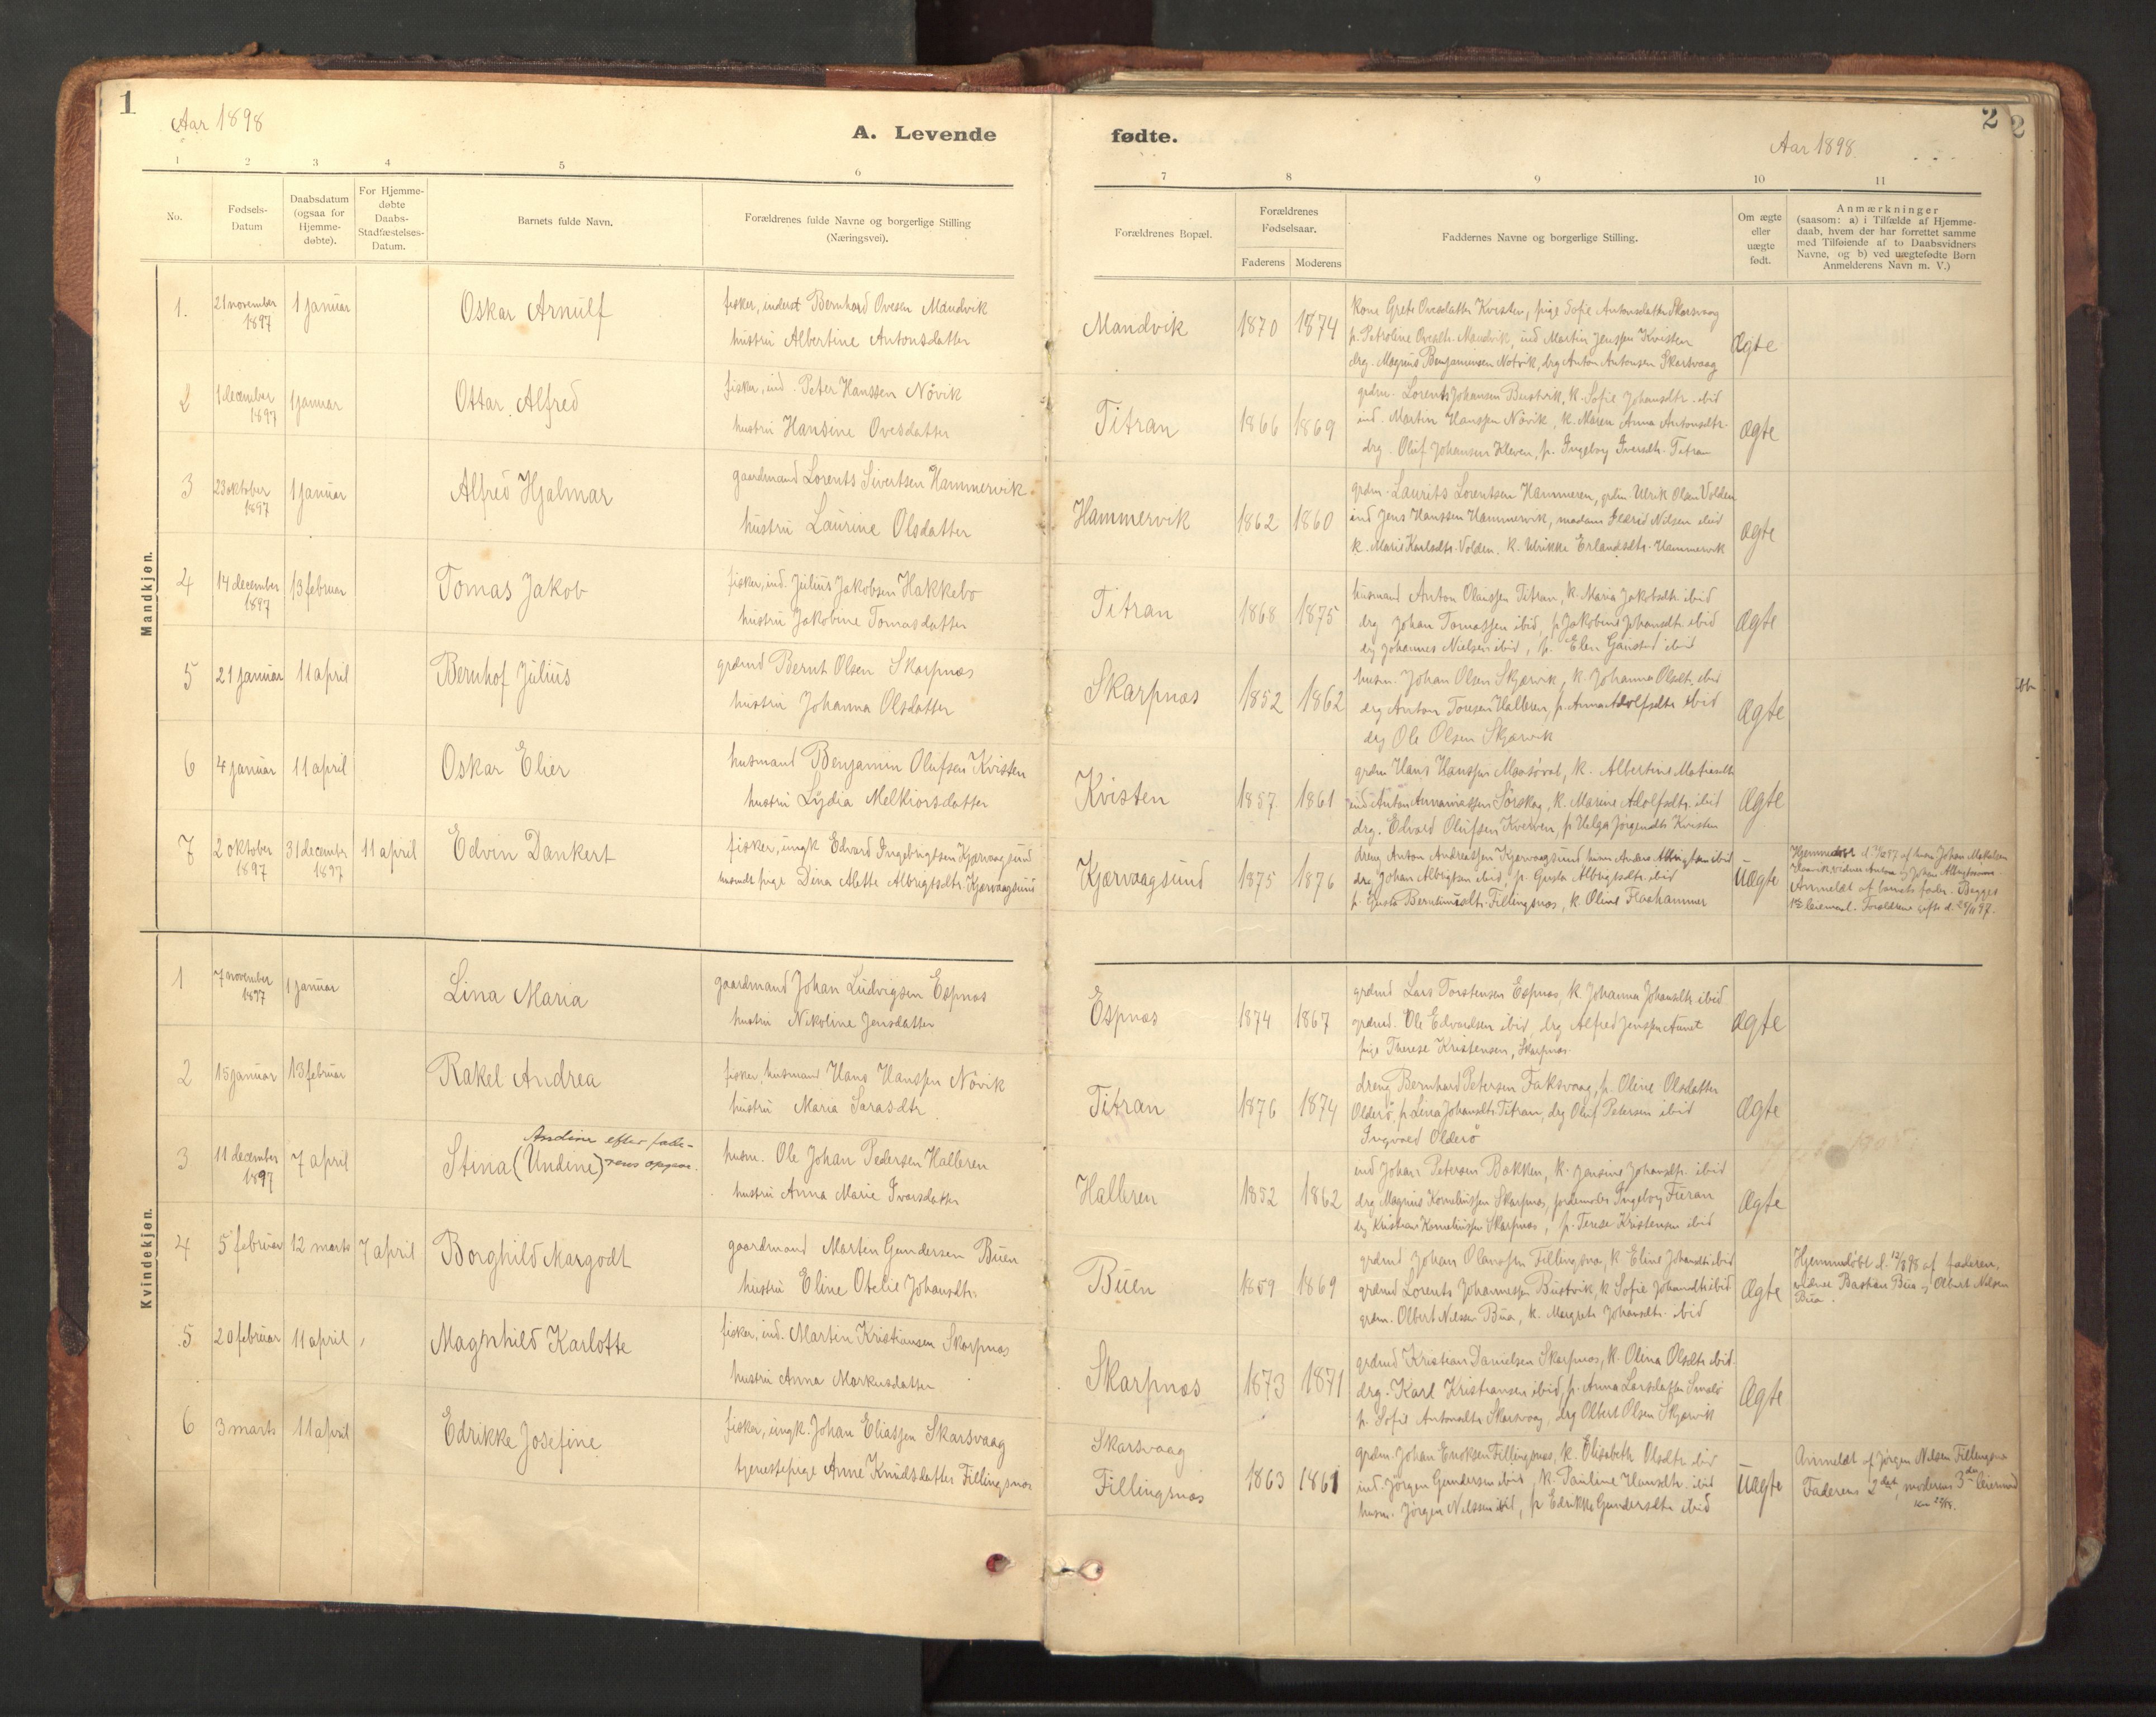 1
Aar 1898
A. Levende
1 2 3 4 5 6
No.
Fødsels-
Datum
Daabsdatum
(ogsaa for
Hjemme-
døbte).
For Hjemme-
døbte
Daabs-
Stadfæstelses-
Datum.
Barnets fulde Navn.
Forældrenes fulde Navne og borgerlige Stilling
(Næringsvei).
Mandkjøn.
1. 21 november 1 januar Oskar Arnulf fisker, inderst Bernhard Ovesen Mandvik
1897 hustru Albertine Antonsdatter
2 1 december 1 januar Ottar Alfred fisker, ind. Peter Hanssen Növik
1897 hustru Hansine Ovesdatter
3 23 oktober 1 januar Alfred Hjalmar gaardmand Lorents Sivertsen Hammervik
1897 hustru Laurine Olsdatter
4 14 december 13 februar Tomas Jakob fisker, ind. Julius Jakobsen Hakkebo
1897 hustru Jakobine Tomasdatter
5 21 januar 11 april Bernhof Julius grdmd Bernt Olsen Skarpnæs
hustru Johanna Olsdatter
6 4 januar 11 april Oskar Elier husmand Benjamin Olufsen Kvisten
hustru Lydia Melkiorsdatter
7 2 oktober 31 december 11 april Edvin Dankert fisker, ungk Edvard Ingebrigtsen Kjærvaagsund
1897 1897 pige Dina Alette Albrigtsdtr. Kjærvaagsund
Kvindekjøn.
1 7 november 1 januar Lina Maria gaardmand Johan Ludvigsen Espnæs
1897 hustru Nikoline Jensdatter
2 15 januar 13 februar Rakel Andrea fisker, husmand Hans Hanssen Növik
hustru Maria Sarasdtr.
Andine efter fade-
3 11 december 7 april Stina (Undine) rens opgav. husm. Ole Johan Pedersen Halleren
1897 hustru Anna Marie Ivarsdatter
4 5 februar 12 marts 7 april Borghild Margodt gaardmand Martin Gundersen Buen
hustru Eline Otelie Johansdtr.
5 20 februar 11 april Magnhild Karlotte fisker, ind. Martin Kristiansen Skarpnæs
hustru Anna Markusdatter
6 3 marts 11 april Edrikke Josefine fisker, ungk. Johan Eliassen Skarsvaag
tjenestepige Anne Knudsdatter Fillingsnæs
fødte.
2
2
Aar 1898.
7 8 9 10 11
Forældrenes Bopæl.
Forældrenes
Fødselsaar.
Faderens Moderens
Faddernes Navne og borgerlige Stilling.
Om ægte
eller
uægte
født.
Anmærkninger
(saasom: a) i Tilfælde af Hjemme-
daab, hvem der har forrettet samme
med Tilføiende af to Daabsvidners
Navne, og b) ved uægtefødte Born
Anmelderens Navn m. V.)
kone Grete Ovesdatter Kvisten, pige Sofie Antonsdatter Skarsvaag
Mandvik 1870 1874 p. Petroline Ovesdtr. Mandvik, ind Martin Jenssen Kvisten ægte
drg. Magnus Benjaminsen Notvik, drg Anton Antonsen Skarsvaag
grdm. Lorents Johansen Bustvik, k. Sofie Johansdtr. ibid
Titran 1866 1869 ind. Martin Hanssen Növik, k. Maren Anna Antonsdtr. ægte
drg. Oluf Johansen Kleven, p. Ingeborg Iversdtr. Titran
grdm. Laurits Lorentsen Hammeren, grdm. Ulrik Olsen Volden
Hammervik 1862 1860 ind Jens Hanssen Hammervik, madam Nilsen ibid ægte
k. Marie Karlsdtr. Volden, k. Ulrikke Erlandsdtr. Hammervik
husmand Anton Olaussen Titran, k. Maria Jakobsdtr ibid
Titran 1868 1875 drg Johan Tomassen ibid, p. Jakobine Johansdtr ibid ægte
drg Johannes Nielsen ibid, p. Elen ibid
husm. Johan Olsen Skjærvik, k. Johanna Olsdtr. ibid
Skarpnæs 1852 1862 drg Anton Halleren, p. Anna Adolfsdtr ibid ægte
drg Ole Olsen Skjærvik
grdm Hans Hanssen k. Albertine
Kvisten 1857 1861 ind Anton Sørskag, k. Marine Adolfsdtr. ibid ægte
drg. Edvard Olufsen Kverven, p Helga Jørgensdtr. Kvisten
dreng Anton Andreassen Kjærvaagsund, husm Anders Albrigtsen ibid
Kjærvaagsund 1875 1876 drg Johan Albrigtsen ibid, p. Gusta Albrigtsdtr. ibid uægte
p. Gusta Fillingsnæs, k. Oline Flashammer
Hjemmedöbt af husm. Johan
vidner Anton og Johan Albrigtsen.
Anmeldt af barnets fader. Begges
1ste leiermaal. Forældrene gifte d. 97.
grdmd Lars Torstensen Espnæs, k. Johanna Johansdtr ibid
Espnæs 1874 1867 grdmd. Ole Edvardsen ibid, drg Alfred Jenssen Aunet ægte
pige Therese Kristensen, Skarpnæs.
dreng Bernhard Petersen Faksvaag, p. Oline Olsdatter
Titran 1876 1874 Olderö, p. Lina Johansdtr. Titran, drg Oluf Petersen ibid ægte
Ingvald Olderö
ind Johan Petersen Bakken, k. Jensine Johansdtr. ibid
Halleren 1852 1862 drg Magnus Korneliussen Skarpnæs, jordemoder Ingeborg Furan ægte
drg Kristian Korneliussen Skarpnæs, p. Terese Kristensen ibid
grdmd Johan Olaussen Fillingsnæs, k. Eline Johansdtr ibid
Buen 1859 1869 grdmd Lorents Johannessen Bustvik, k Sofie Johansdtr ibid ægte
grdm. Olbert Nilssen Bua, k. Margrete Johansdtr. ibid
Hjemmedöbt d. 12/3 98 af faderen,
vidner Bastian Bua og Olbert Nilsen
Bua.
grdmd Kristian Danielsen Skarpnæs, k. Olina Olsdtr ibid.
Skarpnæs 1873 1871 drg. Karl Kristiansen ibid, p. Anna Larsdatter ægte
p. Sofie Antonsdtr Skarsvaag, drg Olbert Olsen Skjærvik
Skarsvaag grdm. Johan Enoksen Fillingsnæs, k. Elisabeth Olsdtr ibid
Fillingsnæs 1863 1861 ind. Jörgen Gundersen ibid, k. Pauline Hansdtr. ibid uægte
husm. Jörgen Nilssen ibid, p Edrikke Gundersdtr ibid
Anmeldt af Jörgen Nilsen Fillingsnæs
Faderens 2det, moderens 3die leiermaal